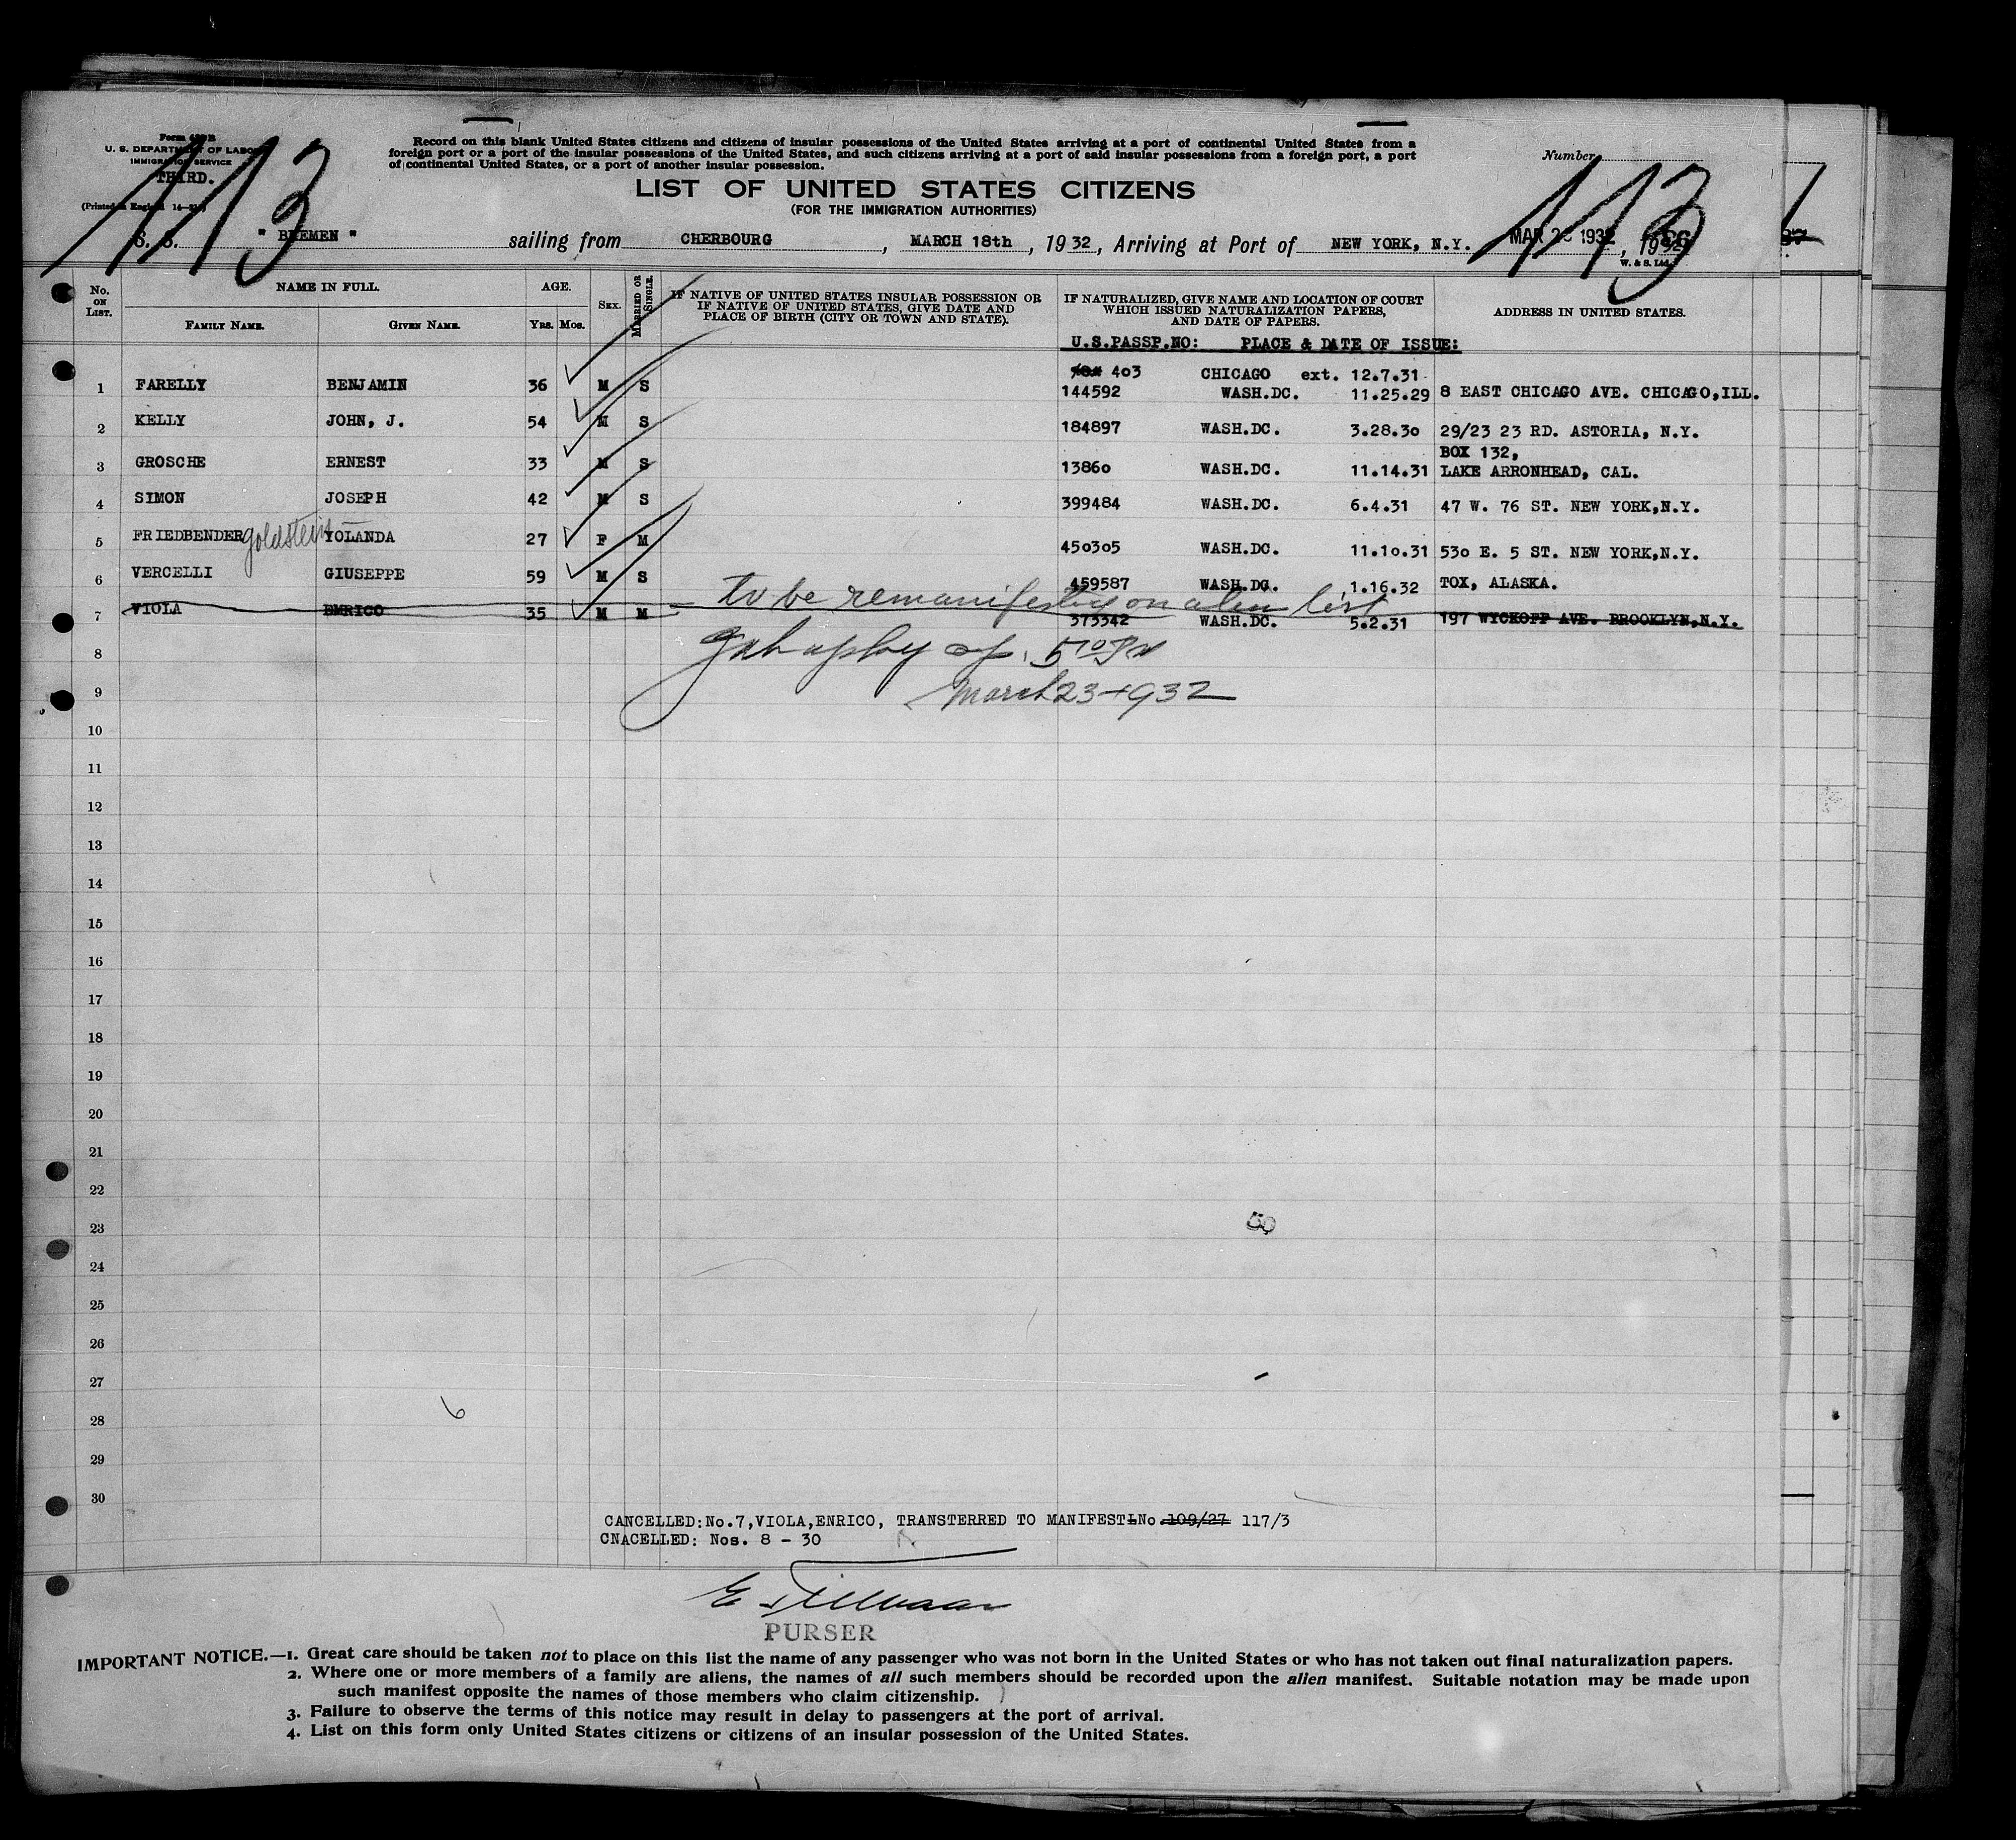 Form 430B
U. S. DEPARTMENT OF LABOR
IMMIGRATION SERVICE
THIRD.
(Printed in England 14—31)
113
Record on this blank United States citizens and citizens of insular possessions of the United States arriving at a port of continental United States from a
foreign port or a port of the insular possessions of the United States, and such citizens arriving at a port of said insular possessions from a foreign port, a port
of continental United States, or a port of another insular possession.
Number
113
LIST OF UNITED STATES CITIZENS
(FOR THE IMMIGRATION AUTHORITIES)
S. S. "BREMEN" sailing from CHERBOURG, MARCH 18th, 1932, Arriving at Port of NEW YORK, N.Y. MAR 23 1932, 1932
W. & S. Ltd.
No. ON LIST. NAME IN FULL. FAMILY NAME. GIVEN NAME. AGE. YRS. MOS. SEX. MARRIED OR SINGLE. IF NATIVE OF UNITED STATES INSULAR POSSESSION OR IF NATIVE OF UNITED STATES, GIVE DATE AND PLACE OF BIRTH (CITY OR TOWN AND STATE). IF NATURALIZED, GIVE NAME AND LOCATION OF COURT WHICH ISSUED NATURALIZATION PAPERS, AND DATE OF PAPERS. ADDRESS IN UNITED STATES.
U.S.PASSP.NO: PLACE & DATE OF ISSUE:
403 CHICAGO ext. 12.7.31
1 FARELLY BENJAMIN 36 M S 144592 WASH.DC. 11.25.29 8 EAST CHICAGO AVE. CHICAGO,ILL.
2 KELLY JOHN, J. 54 M S 184897 WASH.DC. 3.28.30 29/23 23 RD. ASTORIA, N.Y.
BOX 132,
3 GROSCHE ERNEST 33 M S 13860 WASH.DC. 11.14.31 LAKE ARRONHEAD, CAL.
4 SIMON JOSEPH 42 M S 399484 WASH.DC. 6.4.31 47 W. 76 ST. NEW YORK,N.Y.
5 FRIEDBENDER goldstein YOLANDA 27 F M 450305 WASH.DC. 11.10.31 530 E. 5 ST. NEW YORK,N.Y.
6 VERCELLI GIUSEPPE 59 M S 459587 WASH.DC. 1.16.32 TOX, ALASKA.
to be remanifested on alien list
7 VIOLA ENRICO 35 M M 373342 WASH.DC. 5.2.31 197 WYCKOFF AVE. BROOKLYN,N.Y.
8
March 23-1932
9
10
11
12
13
14
15
16
17
18
19
20
21
22
23
50
24
25
26
27
28
6
29
30
CANCELLED:No.7,VIOLA,ENRICO, TRANSTERRED TO MANIFEST No 109/27 117/3
CNACELLED: Nos. 8 - 30
PURSER
IMPORTANT NOTICE.—1. Great care should be taken not to place on this list the name of any passenger who was not born in the United States or who has not taken out final naturalization papers.
2. Where one or more members of a family are aliens, the names of all such members should be recorded upon the alien manifest. Suitable notation may be made upon
such manifest opposite the names of those members who claim citizenship.
3. Failure to observe the terms of this notice may result in delay to passengers at the port of arrival.
4. List on this form only United States citizens or citizens of an insular possession of the United States.